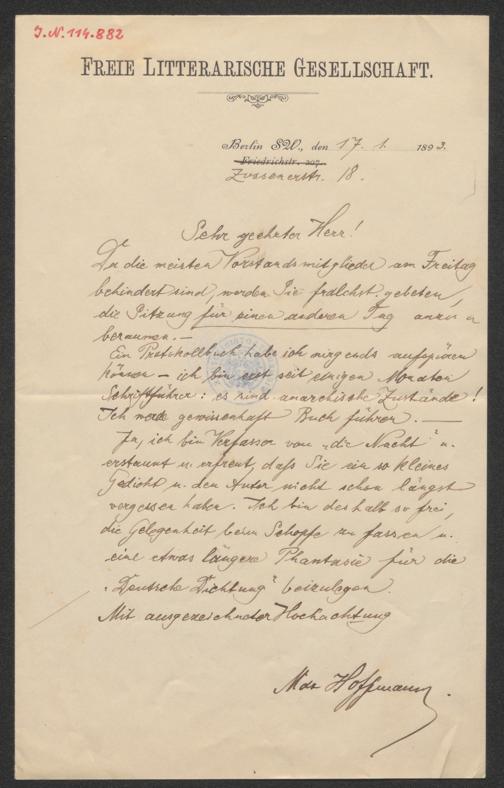 J.N. 114.882
FREIE LITTERARISCHE GESELLSCHAFT.
Berlin SW., den 17. 1. 1893.
Friedrichstr. 207.
Zossenerstr. 18.
Sehr geehrter Herr!
Da die meisten Vorstandsmitglieder am Freitag
behindert sind, werden Sie frdlchst. gebeten,
die Sitzung für einen anderen Tag anzu
beraumen. —
Ein Protokollbuch habe ich nirgends aufspüren
können – ich bin erst seit einigen Monaten
Schriftführer: es sind anarchische Zustände!
Ich werde gewissenhaft Buch führen. —
Ja, ich bin Verfasser von „die Nacht" u.
erstaunt u. erfreut, daß Sie ein so kleines
Gedicht u. den Autor nicht schon längst
vergessen haben. Ich bin deshalb so frei,
die Gelegenheit beim Schopfe zu fassen u.
eine etwas längere Phantasie für die
„Deutsche Dichtung" beizulegen.
Mit ausgezeichneter Hochachtung
Hoffmann.